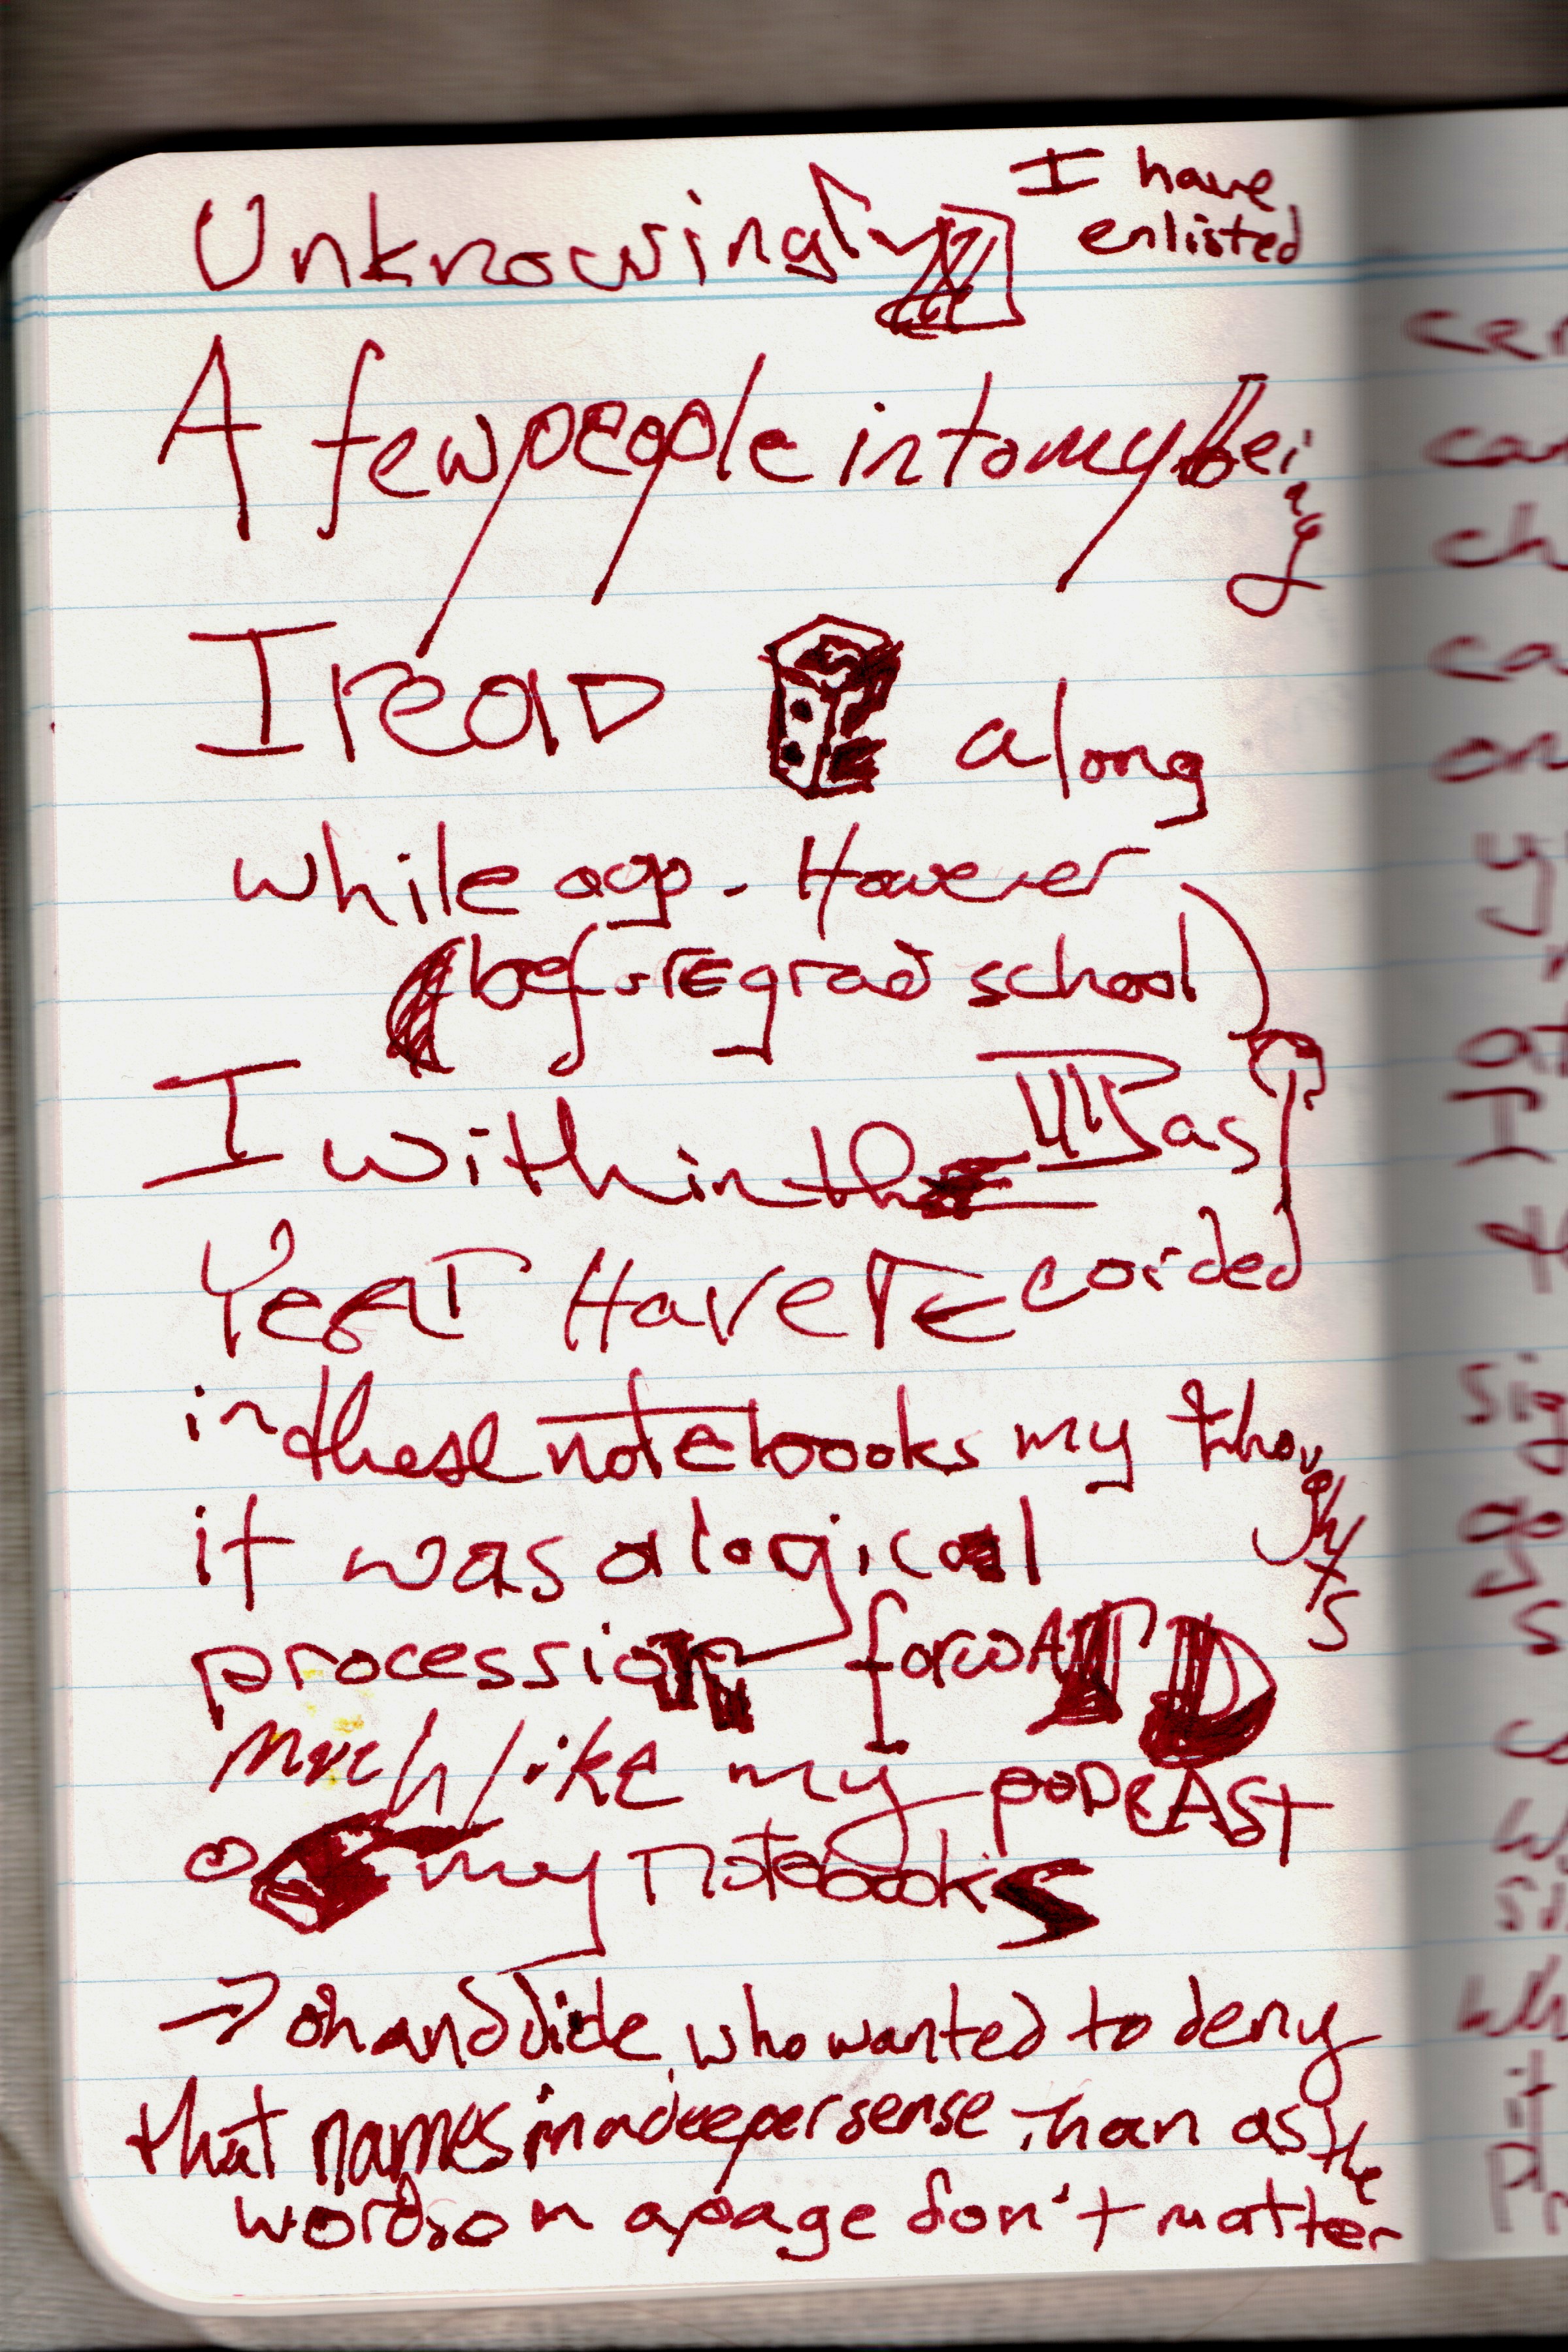 Unknowingly I have
enlisted
A few people into my being
I read along
while ago. However
(before grad school)
I within the as
Year Have recorded
in these notebooks my thoughts
it was a logical
procession forward
much like my podcast
my notebooks
→ oh and dide who wanted to deny
that names in a deeper sense than as the
words on a page don't matter